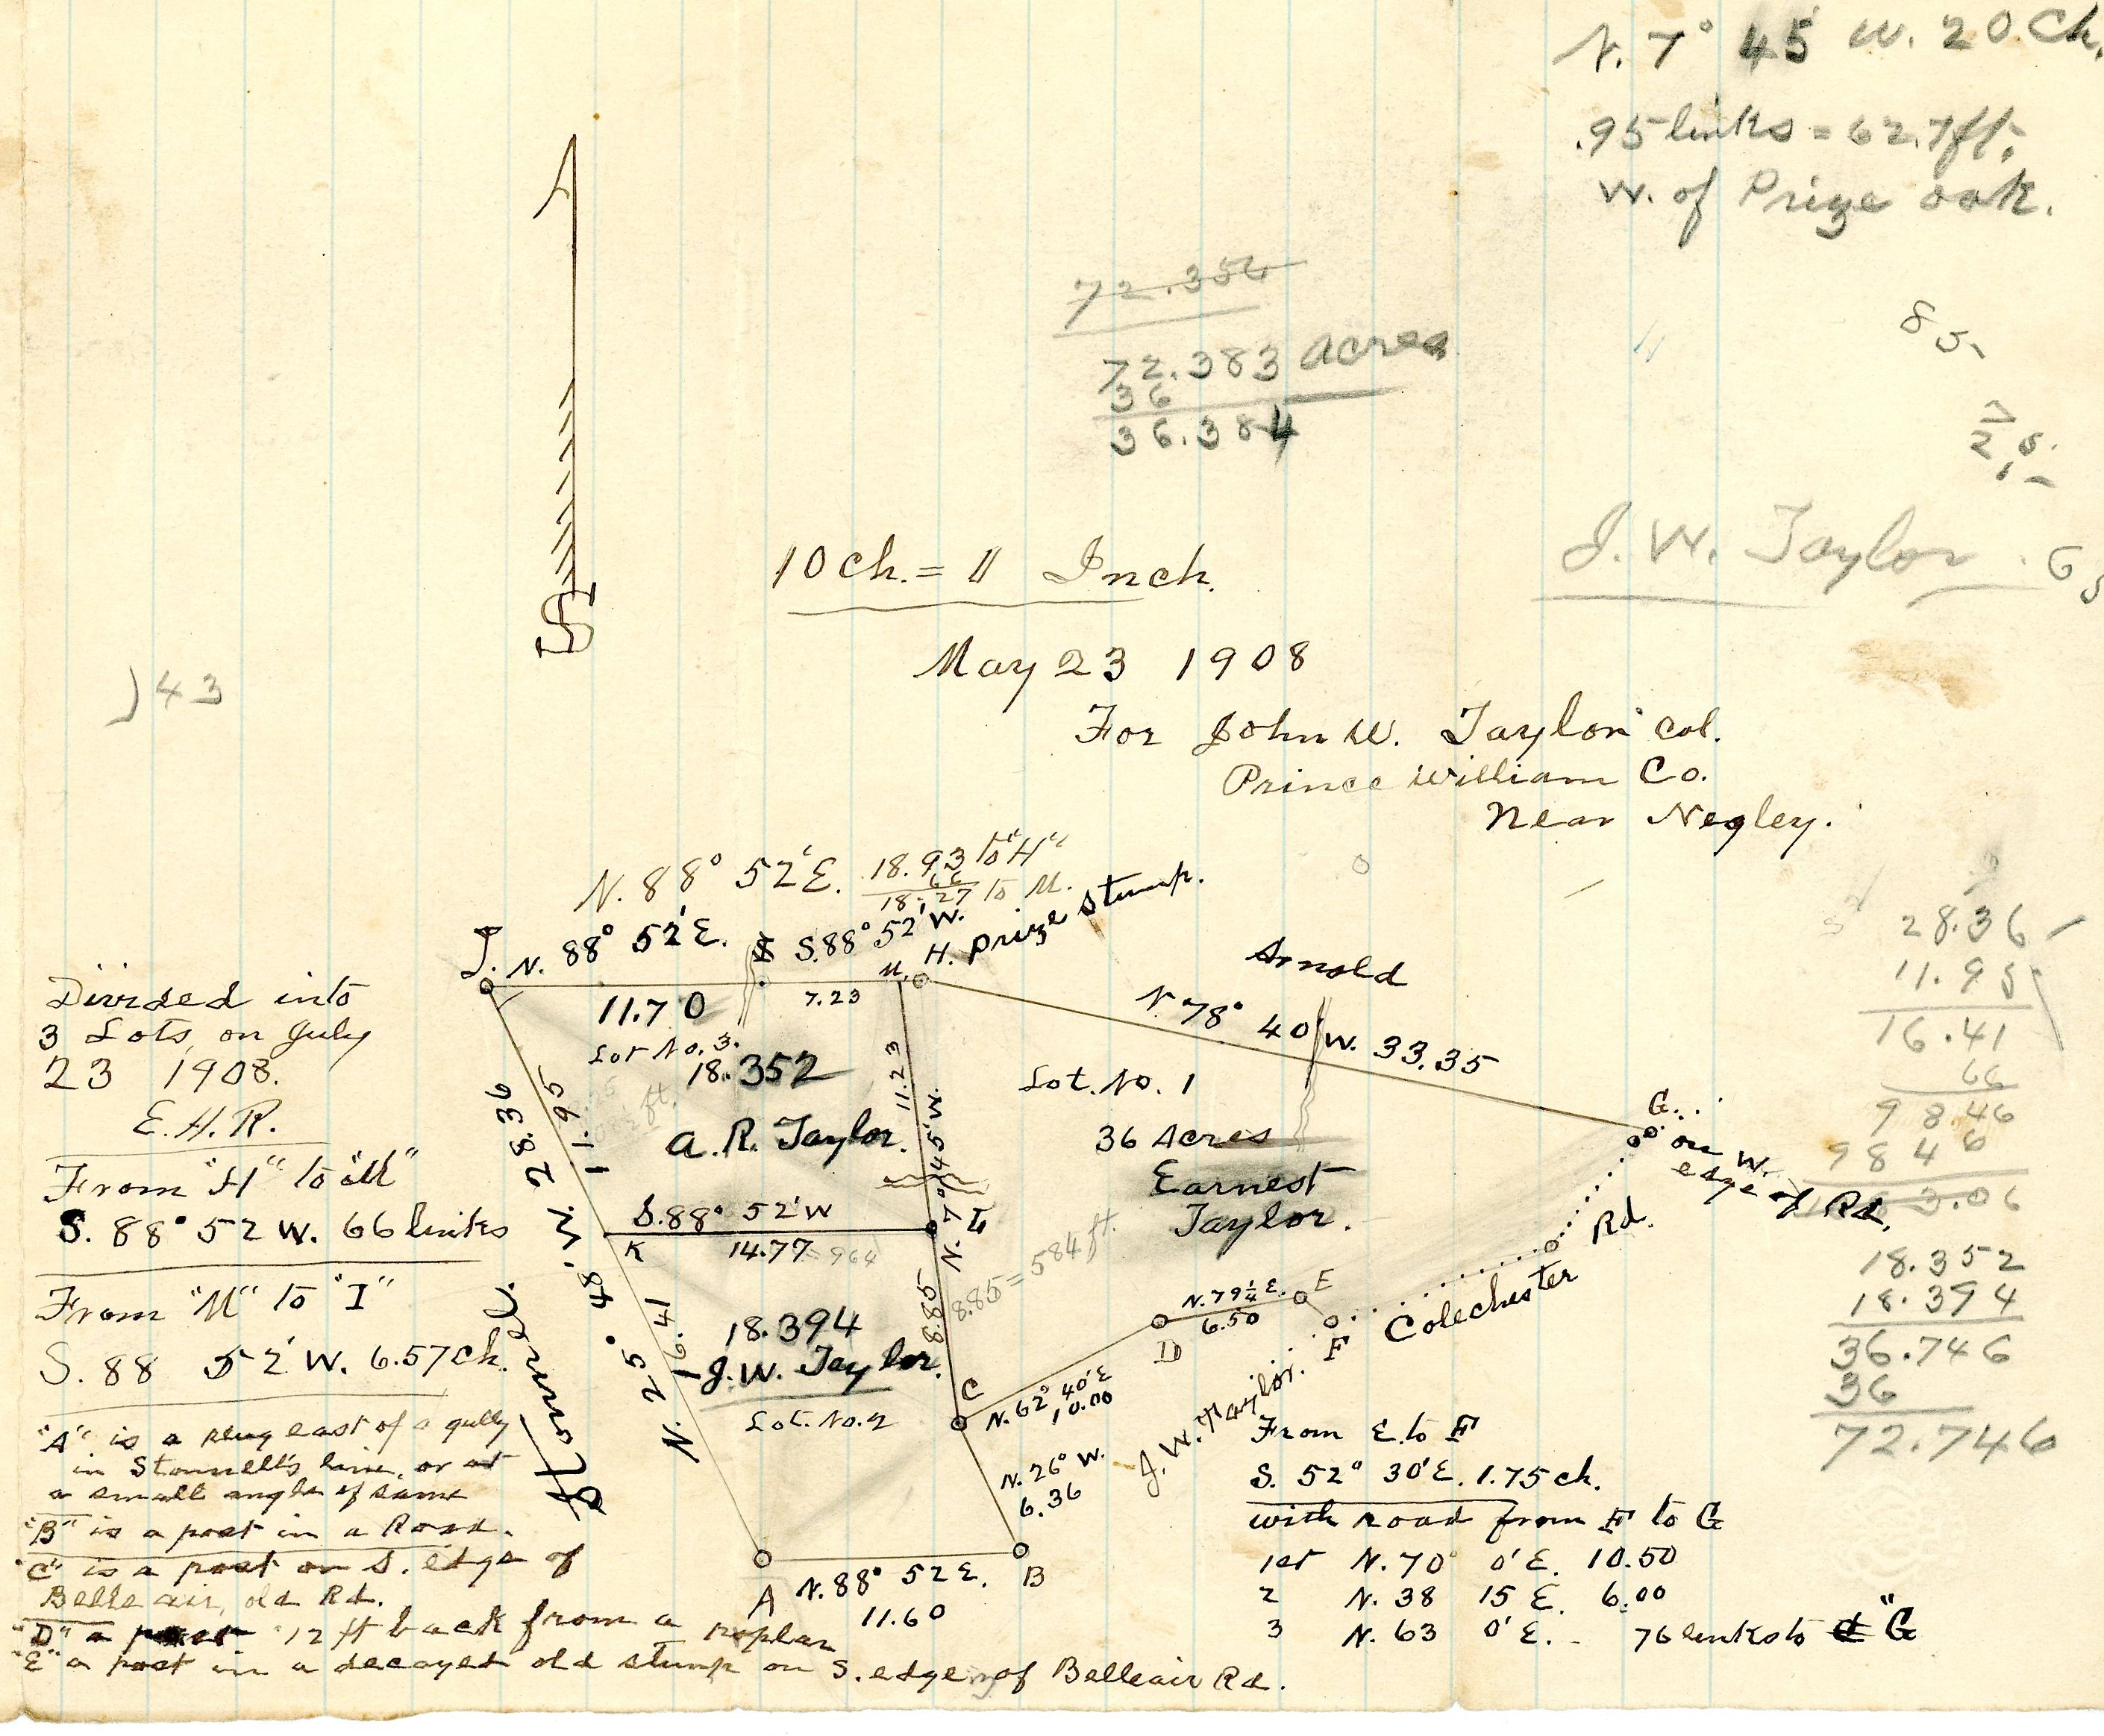 N. 7° 45' W. 20. Ch.
.95 links = 62.7 ft.
W. of Prize oak.
72.354
72.383 acres
36
36.384
85
J. W. Taylor
10 ch. = 1 Inch.
May 23 1908
For John W. Taylor Col.
Prince William Co.
Near Negley.
)43
N. 88° 52' E. 18.93 to "H"
66
18.27 to M.
J. N. 88° 52' E. I S. 88° 52' W. M. H. Prize stump.
11.70 7.23
Arnold
N 78° 40' W. 33.35
Divided into
3 Lots, on July
23 1908.
E. H. R.
From "H" to "M"
S. 88° 52 W. 66 links
From "M" to "I"
S. 88 52' W. 6.57 ch.
Lot No. 3.
18.352
A. R. Taylor.
11.23
N. 7° 45' W.
N. 25° 48' W. 28.36
11.95
Lot. No. 1
36 Acres
Earnest
Taylor.
G.
on W.
edge of Rd.
Rd.
Colechester
S. 88° 52' W
K 14.77 = 964 L
16.41
18.394
J. W. Taylor.
Lot. No. 2
8.85
8.85 = 584 ft.
C
N. 62° 40' E
10.00
D
N. 79 1/4 E.
6.50
E
F
J. W. Taylor.
N. 26° W.
6.36
A N. 88° 52 E. B
11.60
28.36
11.95
16.41
66
9846
9846
18.352
18.394
36.746
36
72.746
"A" is a plug east of a gully
in Stonnell's line, or at
a small angle of same
"B" is a post in a Road.
"C" is a post on S. edge of
Belleair, old Rd.
"D" a post 12 ft back from a poplar
"E" a post in a decayed old stump on S. edge of Belleair Rd.
From E. to F
S. 52° 30' E. 1.75 ch.
with road from F to G
1st N. 70° 0' E. 10.50
2 N. 38 15 E. 6.00
3 N. 63 0' E. - 76 links to "G